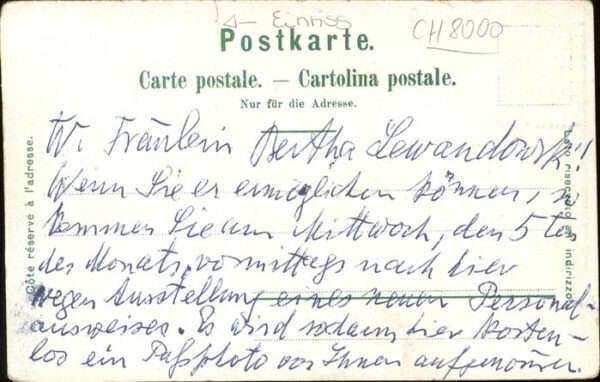 Einriss
CH8000
Postkarte.
Carte postale. — Cartolina postale.
Nur für die Adresse.
Côté réservé à l'adresse.
Lato riservato all'indirizzo.
W. Fräulein Bertha Lewandowski!
Wenn Sie er ermöglichen können, so
kommen Sie am Mittwoch, den 5ten
des Monats, vormittags nach hier
wegen Ausstellung eines neuen Personal-
ausweises. Es wird sodann hier kosten-
los ein Paßphoto von Ihnen aufgenommen.